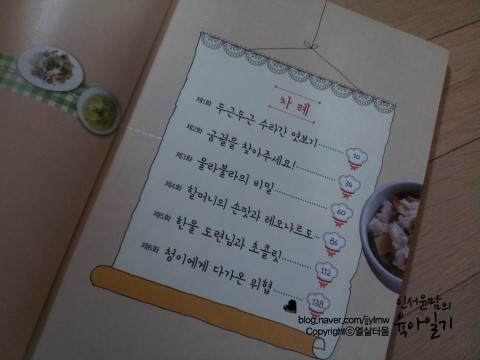 차례
제1화 두근두근 수라간 엿보기 10
제2화 궁궐을 찾아주세요! 34
제3화 울라불라의 비밀 60
제4화 할머니의 손맛과 레오나르도 86
제5화 한울 도련님과 초콜릿 112
제6화 청이에게 다가온 위협 138
인서윤맘의
육아일기
blog.naver.com/jjylmw
Copyrightⓒ열살터울